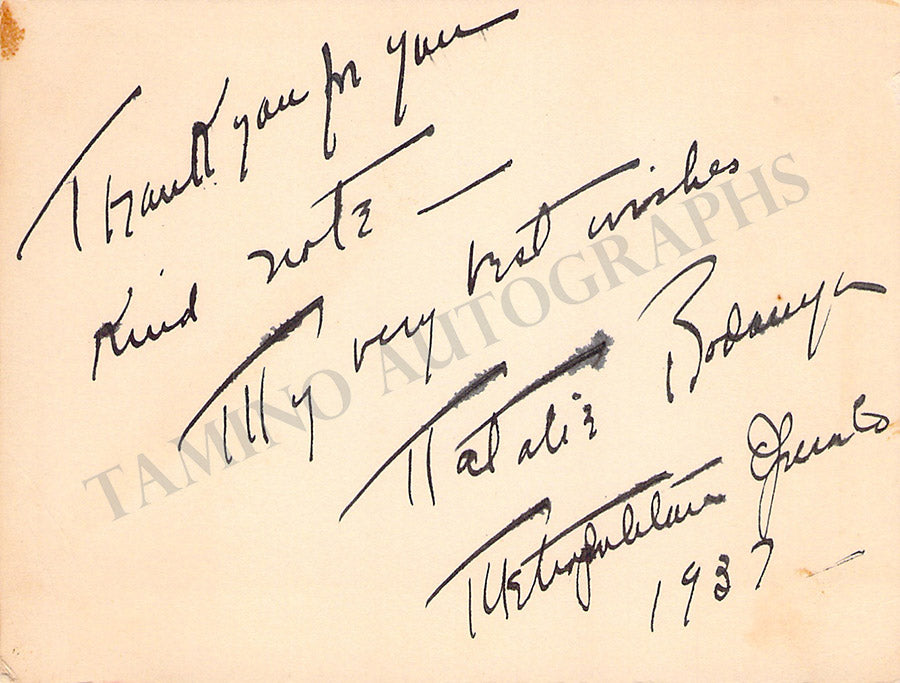 Thank you for your
Kind note —
My very best wishes
Natalie Bodanya
Metropolitan Opera Co
1937 —
TAMINO AUTOGRAPHS